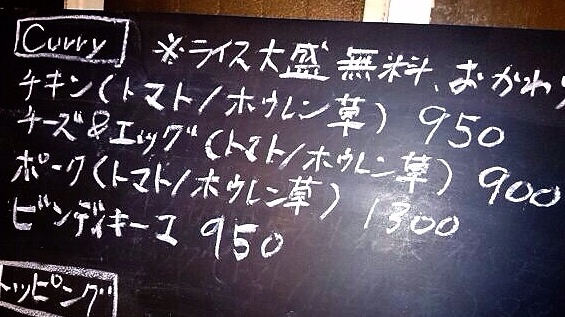 Curry ※ライス大盛無料、おかわり
チキン(トマト/ホウレン草) 950
チーズ&エッグ(トマト/ホウレン草) 900
ポーク(トマト/ホウレン草) 1300
ビンディキーマ 950
トッピング